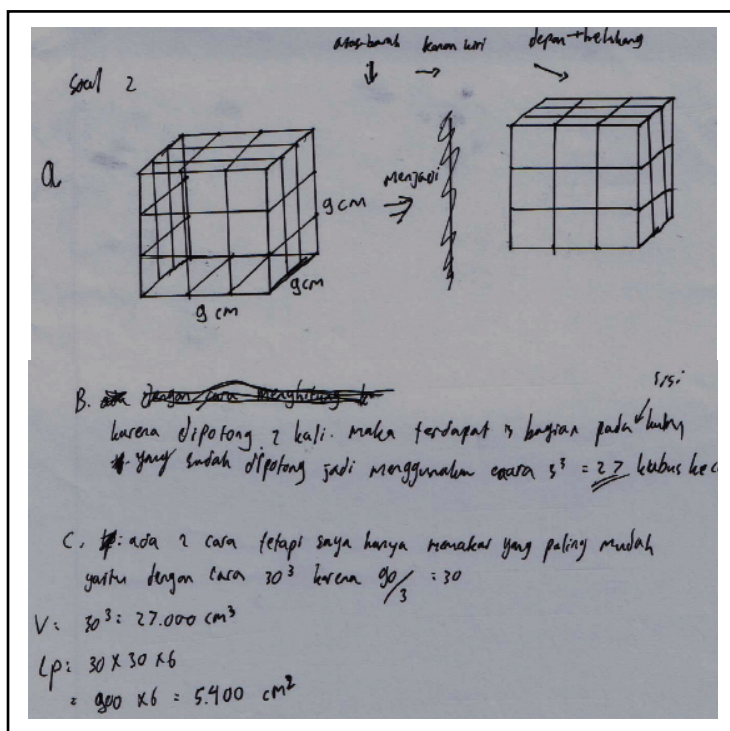 atas-bawah kanan kiri depan + belakang
Soal 2
a
menjadi
9 cm
9 cm
9 cm
sisi
B.
karena dipotong 2 kali. maka terdapat 3 bagian pada kubus
yang sudah dipotong jadi menggunakan cara 3³ = 27 kubus kec
C. ada 2 cara tetapi saya hanya memakai yang paling mudah
yaitu dengan cara 30³ karena 90/3 = 30
V: 30³ = 27.000 cm³
Lp: 30 x 30 x 6
= 900 x 6 = 5.400 cm²